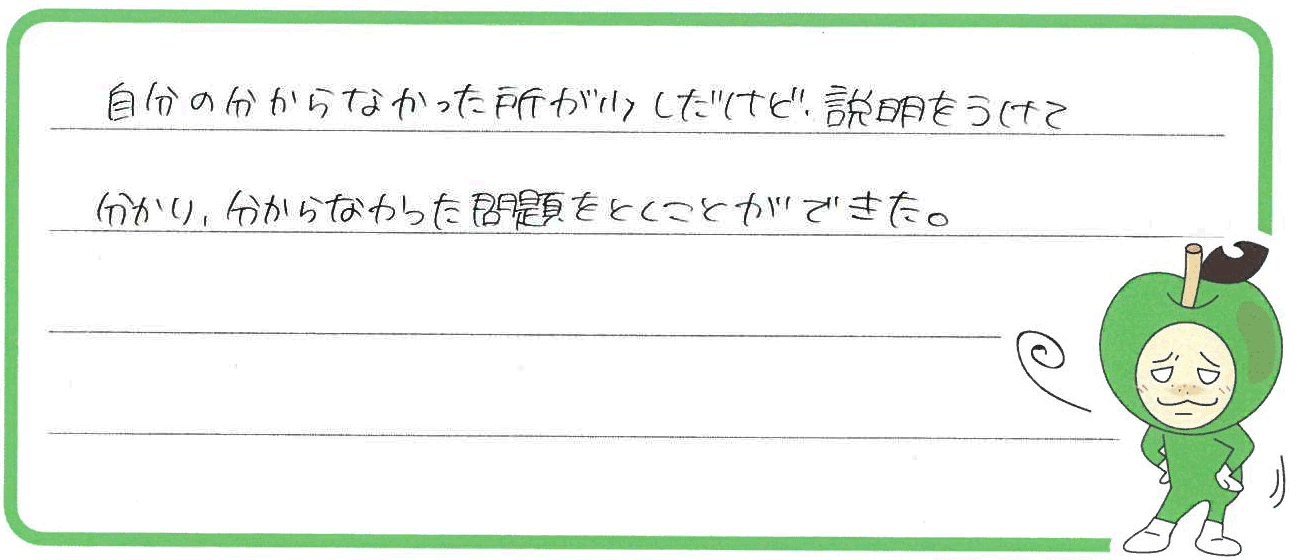 自分の分からなかった所が少しだけど、説明をうけて
分かり、分からなかった問題をとくことができた。